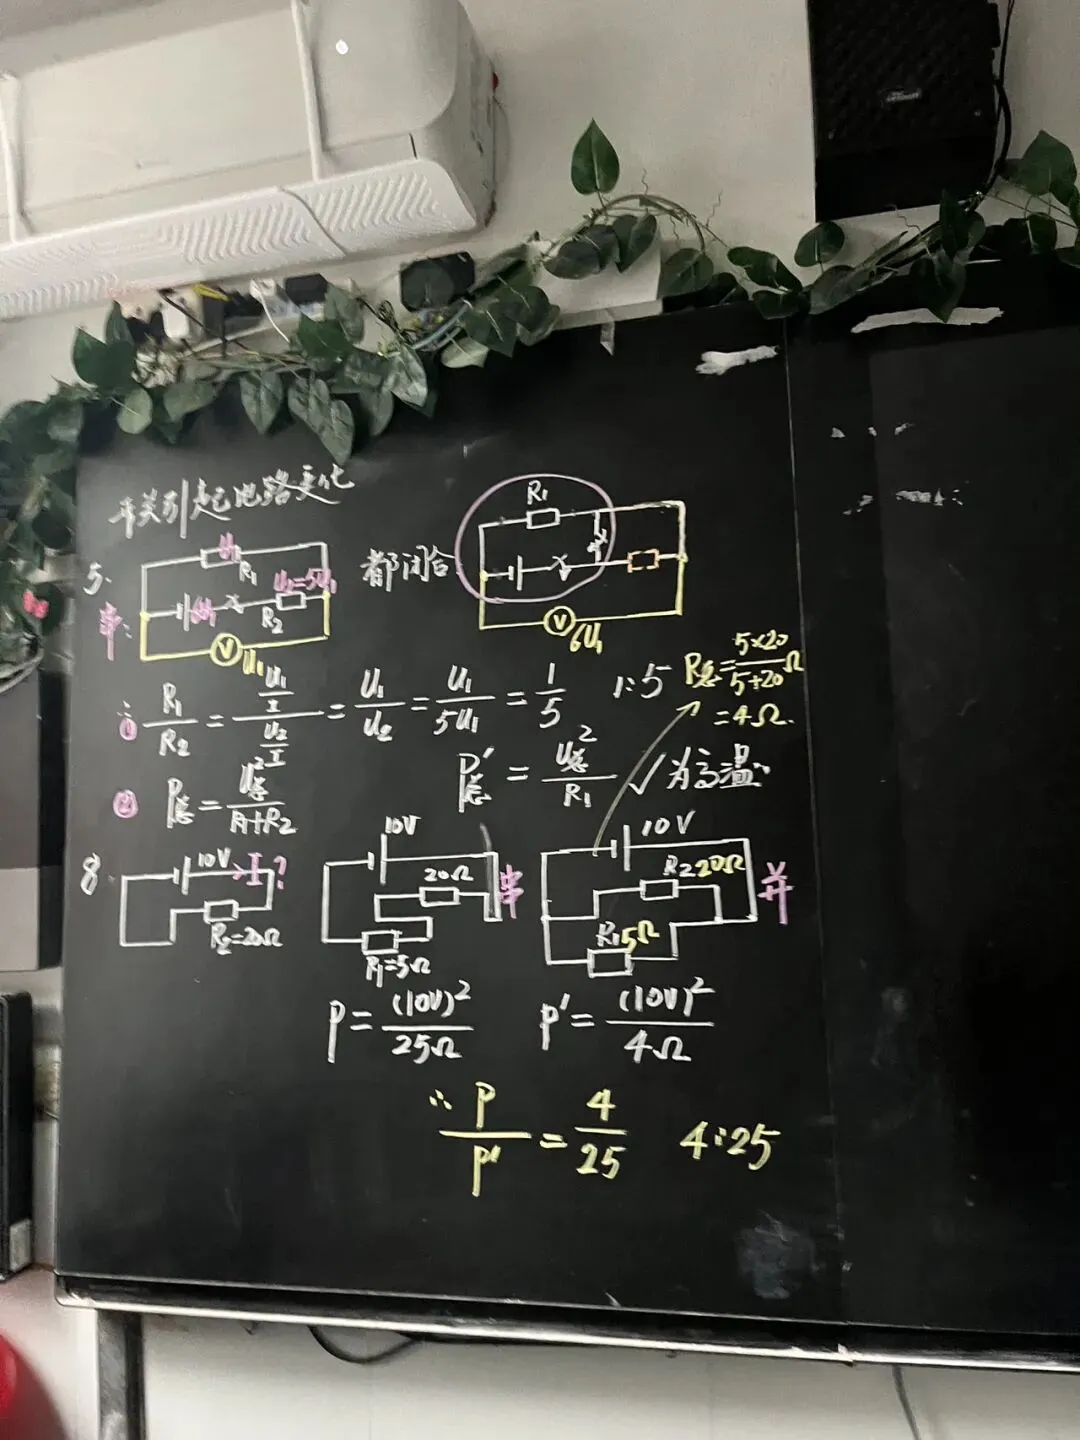 开关引起电路变化
5.
串:
U₁
R₁
6U₁
U₂=5U₁
R₂
V
U₁
都闭合
R₁
V
6U₁
① R₁/R₂ = (U₁/I)/(U₂/I) = U₁/U₂ = U₁/5U₁ = 1/5 1:5
R总 = 5×20/5+20 Ω
= 4Ω.
② P总 = U总²/R₁+R₂
P总′ = U总²/R₁ √为高温.
8.
10V I?
R₂=20Ω
10V
20Ω
R₁=5Ω
串
10V
R₂ 20Ω
R₁ 5Ω
并
P = (10V)²/25Ω
P′ = (10V)²/4Ω
∴ P/P′ = 4/25 4:25